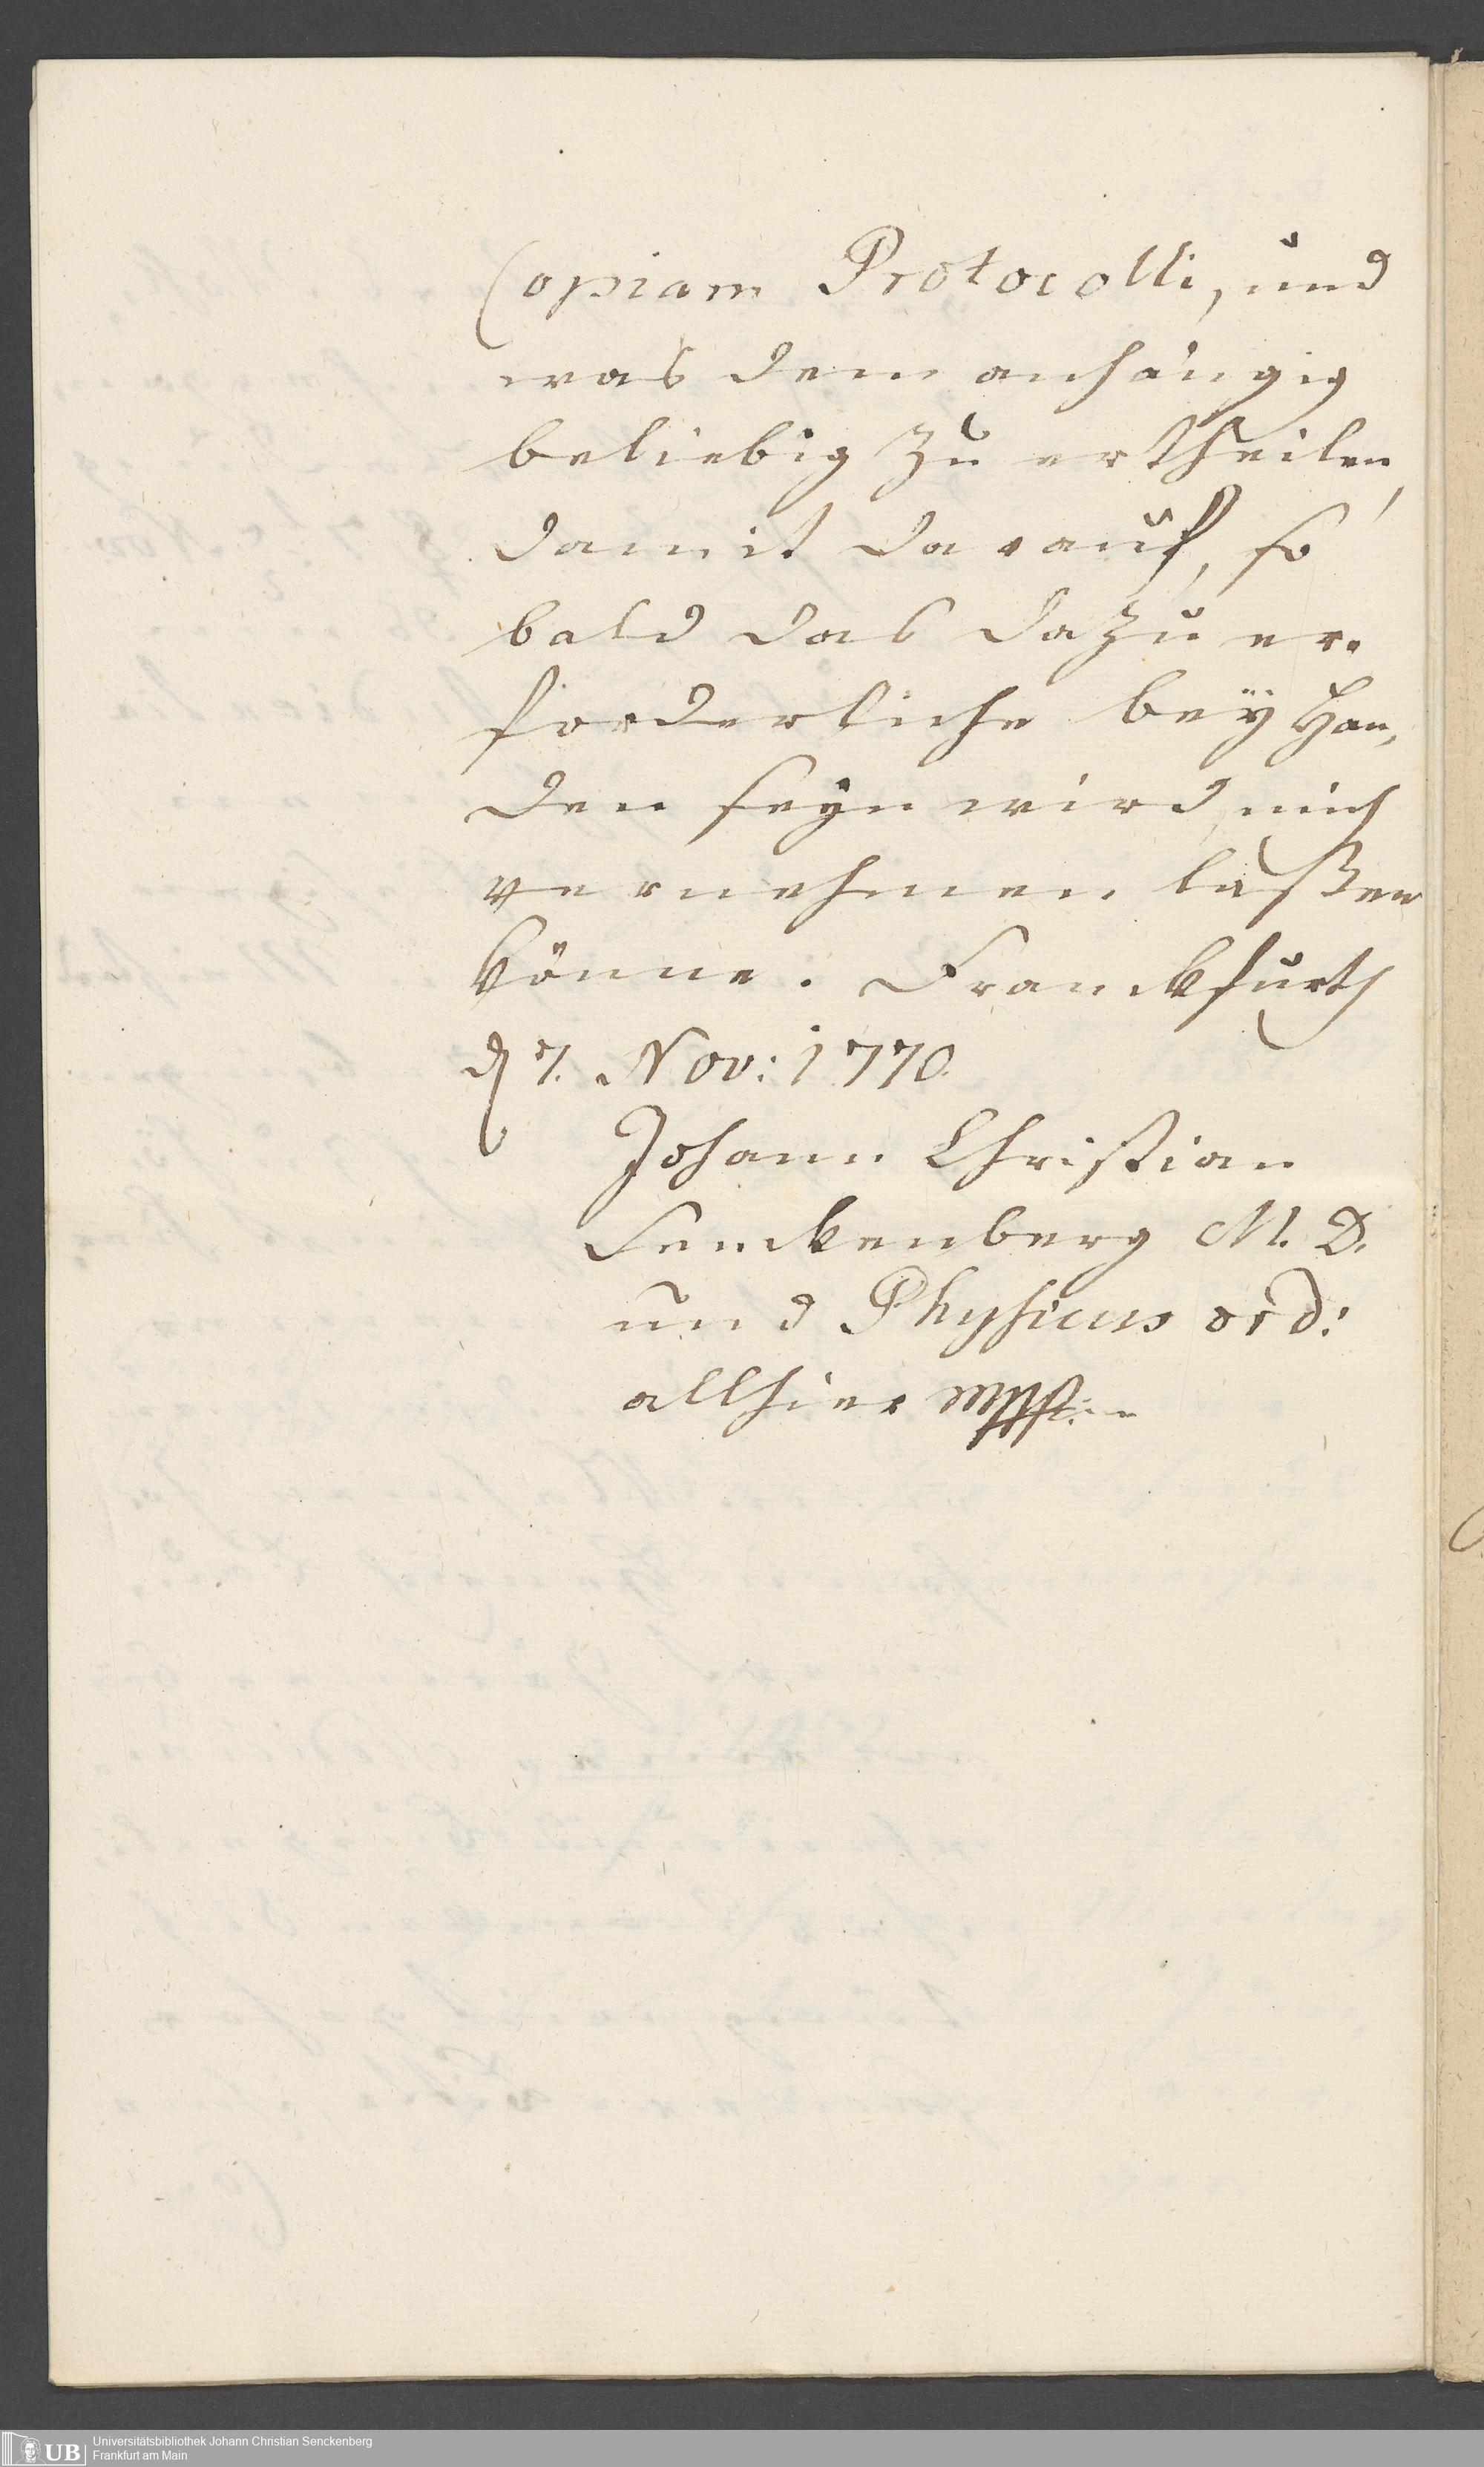 Copiam Protocolli, und
was dem anhängig
beliebig zu ertheilen,
damit darauf, so
bald das dazu er-
forderliche bey Han,
den seyn wird, mich
vernehmen laßen
könne. Franckfurth
d 7. Nov: 1770.
Johann Christian
Senckenberg M. D.
und Physicus ord:
allhier mppria
UB Universitätsbibliothek Johann Christian Senckenberg
Frankfurt am Main